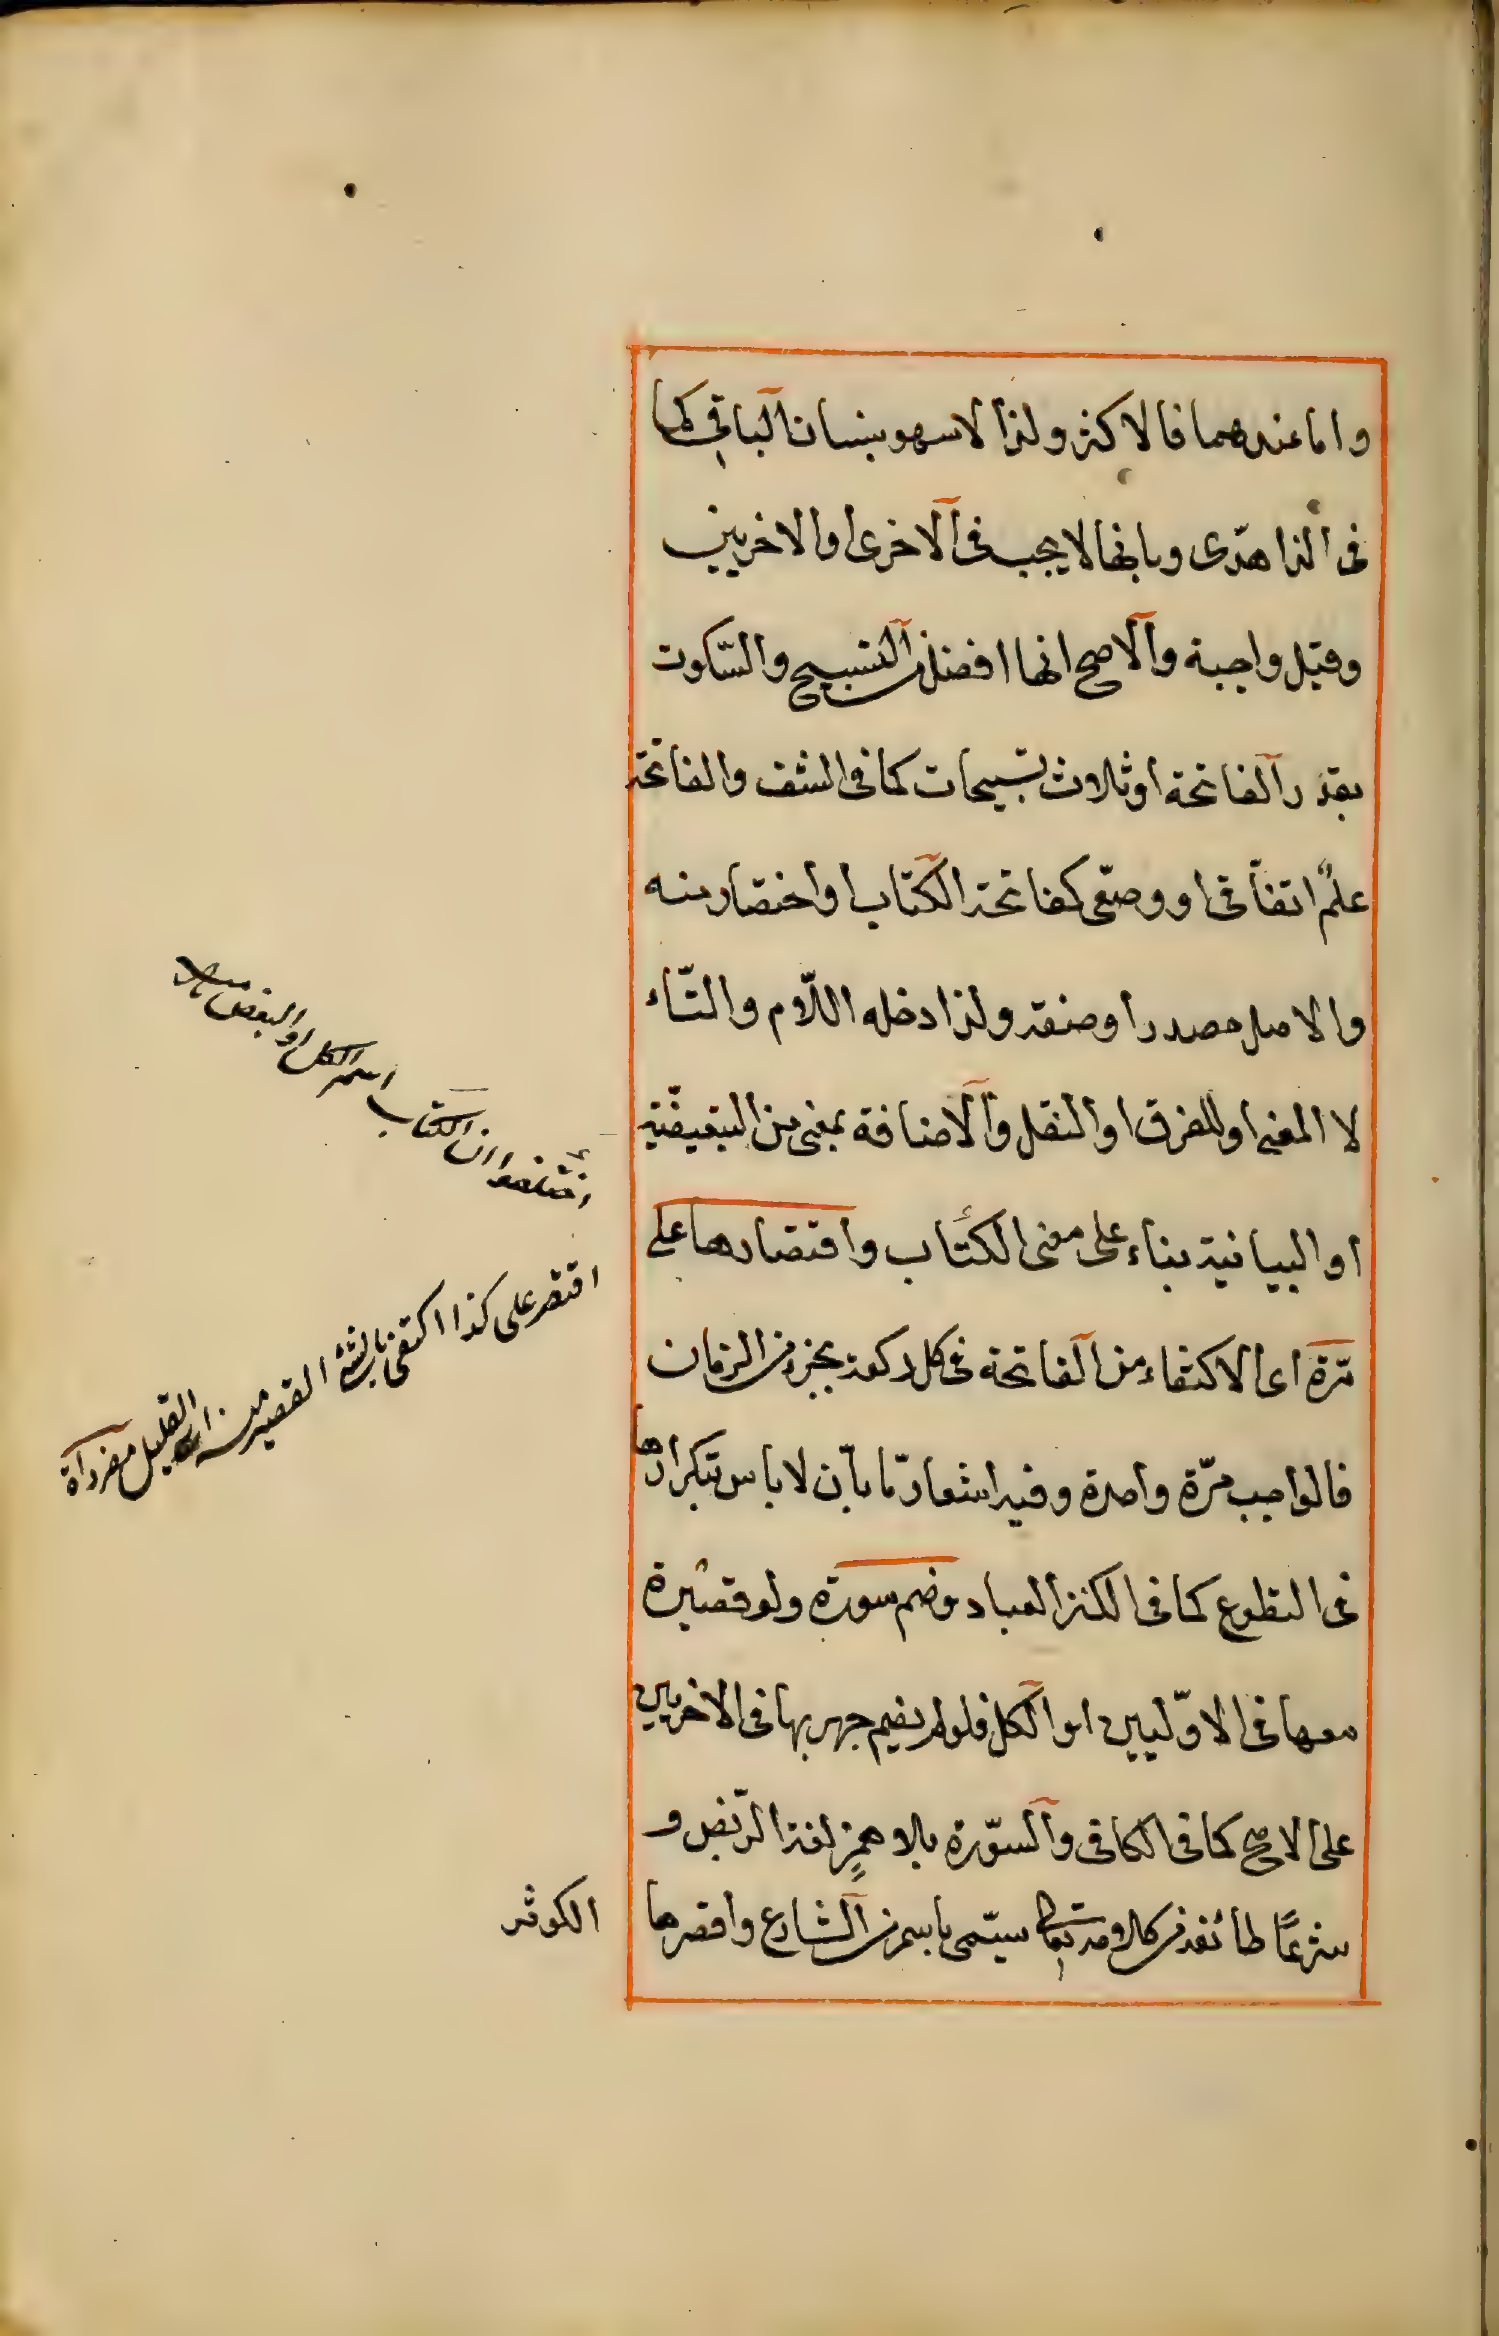 واما عندهما فالاكثر ولذا لاسهو بنسيان الباقي كما
في الزاهدى وبانها لا يجب في الاخرى او الاخريين
وقيل واجبة والاصح انها افضل من التسبيح والسكوت
بقدر الفاتحة او ثلاث تسبيحات كما في النتف والفاتحة
علم اتفاقى او وصفى كفاتحة الكتاب او اختصار منه
والاصل مصدر او صفة ولذا دخله اللّام والتّاء
لا المعنى او للفرق او النقل والاضافة بمعنى من التبعيضية
او البيانية بناء على معنى الكتاب واقتصارها على
مرّة اى الاكتفاء من الفاتحة في كل ركعة بجزء من الزمان
فالواجب مرّة واحدة وفيه اشعار مّا بأن لا بأس بتكرارها
في التطوع كما في الكنز العباد وضم سورة ولو قصيرة
معها في الاوّليين او الكل فلو لم يضم جهر بها في الاخريين
على الاصح كما في الكافى والسّورة بلا همز لغة الرّبض و
شرعًا طائفة من كلامه تعالى سيّمى باسم من الشارع واقصرها
الكوثر
اختلفوا ان الكتاب اسم الكل او البعض
اقتصر على كذا اكتفى بالشئ القصير منه اى القليل مفردات